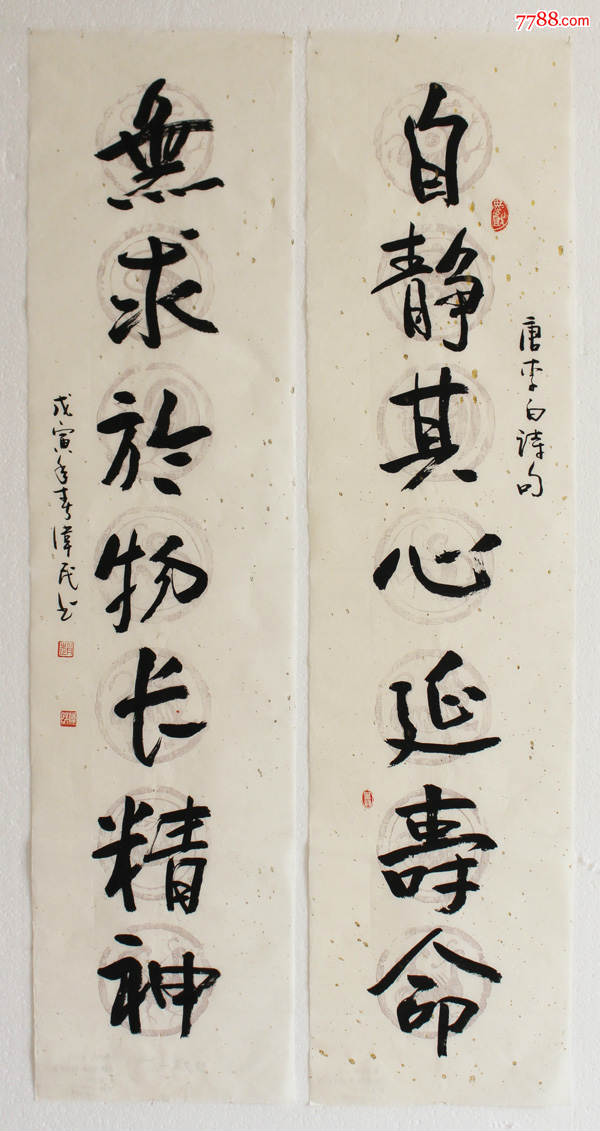 7788.com
自靜其心延壽命
唐李白詩句
無求於物长精神
戊寅年春偉民书